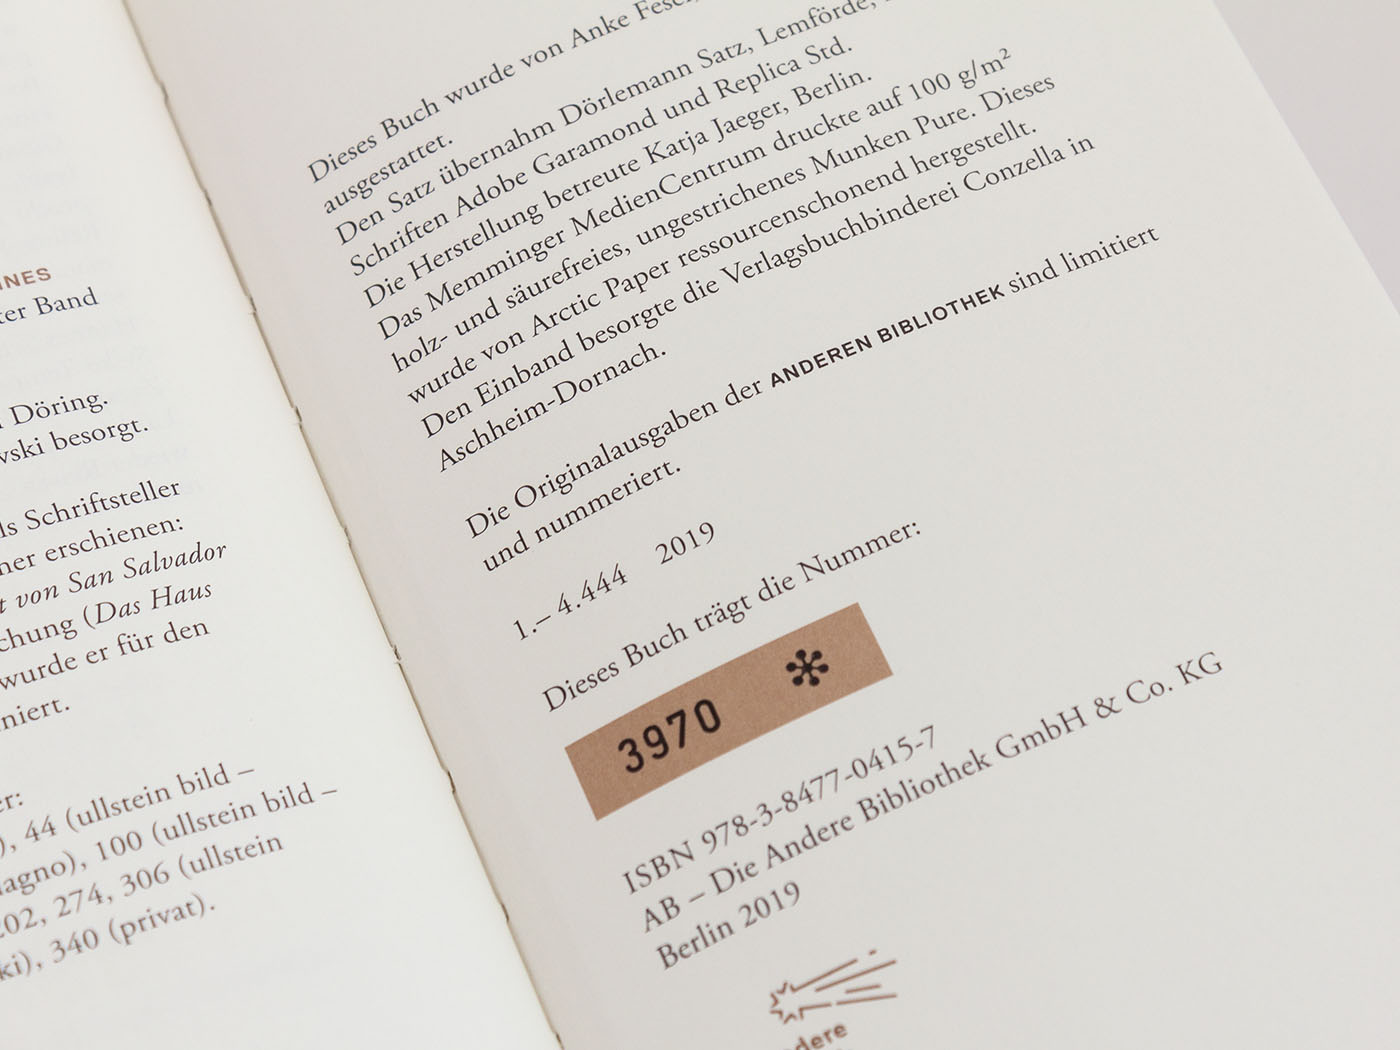 INES
ter Band
Döring.
wski besorgt.
ls Schriftsteller
ner erschienen:
t von San Salvador
chung (Das Haus
wurde er für den
niert.
er:
), 44 (ullstein bild –
lagno), 100 (ullstein bild –
202, 274, 306 (ullstein
ki), 340 (privat).
Dieses Buch wurde von Anke Fesel,
ausgestattet.
Den Satz übernahm Dörlemann Satz, Lemförde,
Schriften Adobe Garamond und Replica Std.
Die Herstellung betreute Katja Jaeger, Berlin.
Das Memminger MedienCentrum druckte auf 100 g/m²
holz- und säurefreies, ungestrichenes Munken Pure. Dieses
wurde von Arctic Paper ressourcenschonend hergestellt.
Den Einband besorgte die Verlagsbuchbinderei Conzella in
Aschheim-Dornach.
Die Originalausgaben der ANDEREN BIBLIOTHEK sind limitiert
und nummeriert.
1.– 4.444 2019
Dieses Buch trägt die Nummer:
3970 *
ISBN 978-3-8477-0415-7
AB – Die Andere Bibliothek GmbH & Co. KG
Berlin 2019
dere